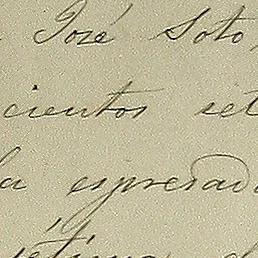 José Soto,
cientos set
la espresada
séptima d